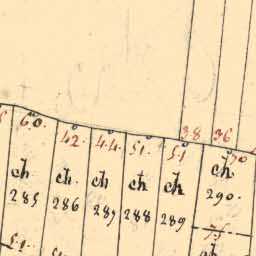 60. 42. 44. 51. 51 38 36 70
ch ch. ch ch ch ch
285 286 287 288 289 290.
51. 51. 75.
ch